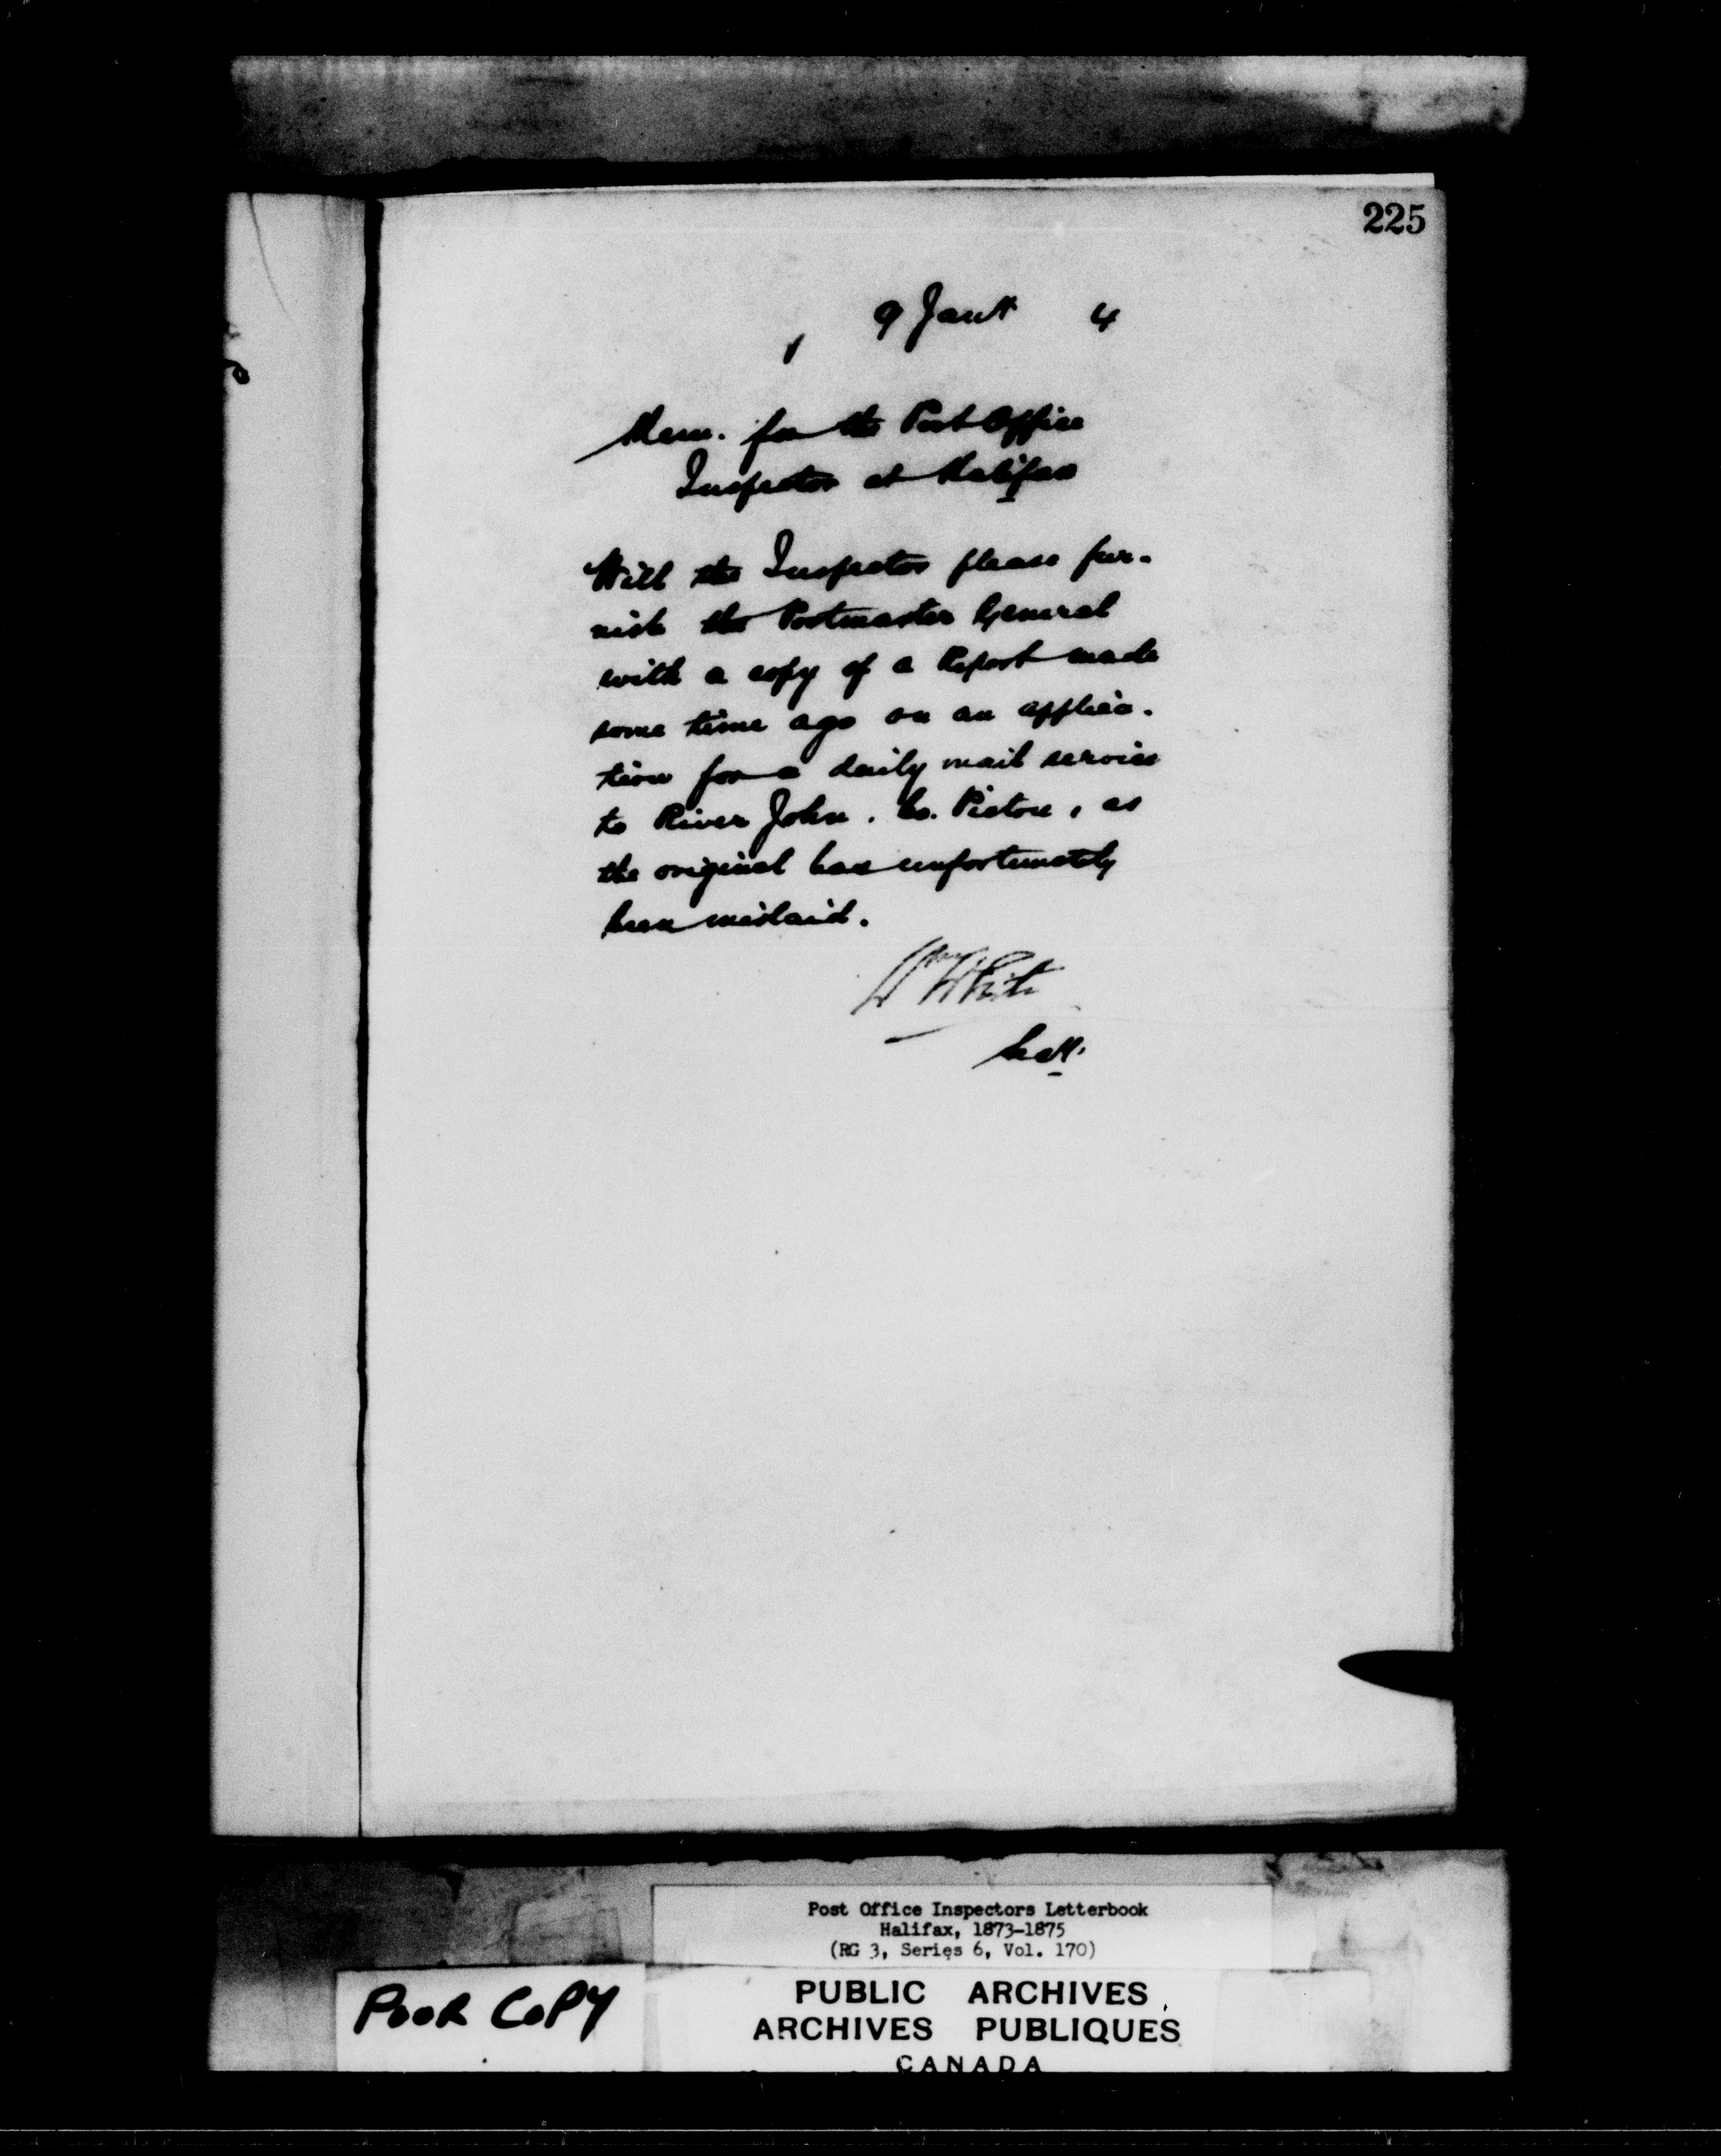 225
9 Jany 4
Mem. for the Post Office
Inspector at Halifax
Will the Inspector please fur-
nish the Postmaster General
with a copy of a Report made
some time ago on an applica-
tion for a daily mail service
to River John. Co. Pictou, as
the original has unfortunately
been mislaid.
Wm White
Post Office Inspectors Letterbook
Halifax, 1873-1875
(RG 3, Series 6, Vol. 170)
POOR COPY
PUBLIC ARCHIVES
ARCHIVES PUBLIQUES
CANADA